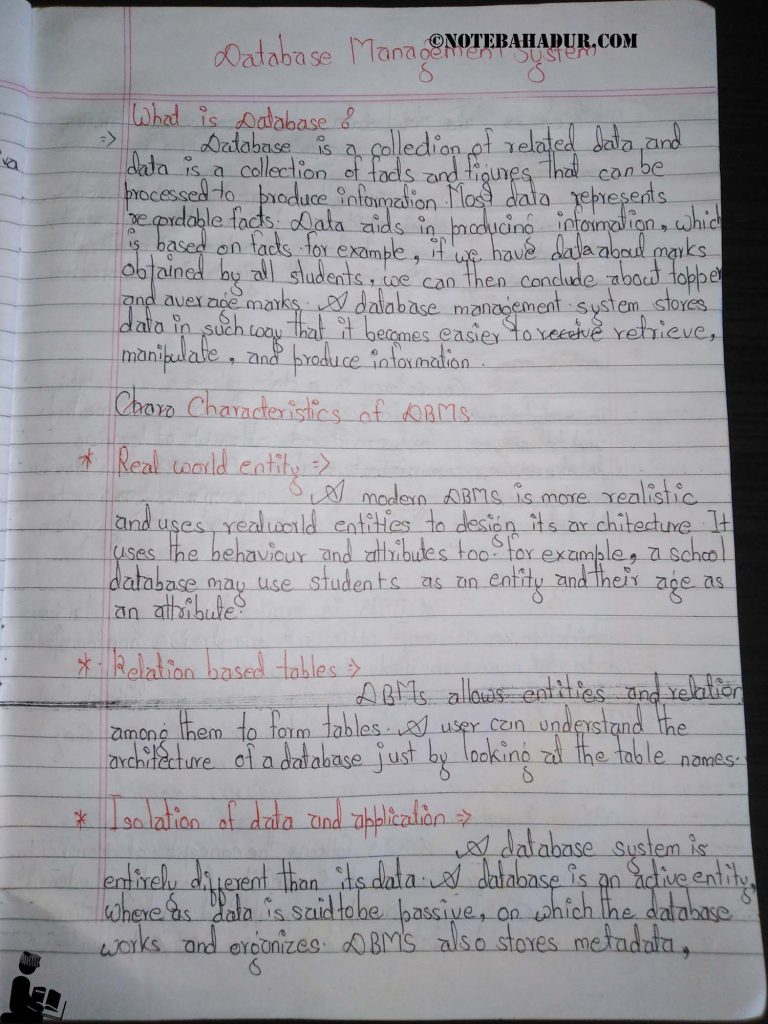 ©NOTEBAHADUR.COM
Database Management System
What is Database ?
⇒ Database is a collection of related data and
data is a collection of facts and figures that can be
processed to produce information. Most data represents
recordable facts. Data aids in producing information, which
is based on facts. for example, if we have data about marks
obtained by all students, we can then conclude about topper
and average marks. A database management system stores
data in such way that it becomes easier to retrieve,
manipulate, and produce information.
Chara Characteristics of DBMS
* Real world entity ⇒
A modern DBMS is more realistic
and uses real world entities to design its architecture. It
uses the behaviour and attributes too. for example, a school
database may use students as an entity and their age as
an attribute.
* Relation based tables ⇒
DBMS allows entities and relation
among them to form tables. A user can understand the
architecture of a database just by looking at the table names.
* Isolation of data and application ⇒
A database system is
entirely different than its data. A database is an active entity,
where as data is said to be passive, on which the database
works and organizes. DBMS also stores metadata,